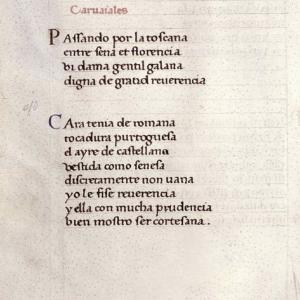 Caruaiales
PAssando por la toscana
entre sena et florencia
vi dama gentil galana
digna de grand reuerencia
CAra tenia de romana
tocadura purtoguesa
el ayre de castellana
vestida como senesa
discretamente non uana
yo le fise reuerencia
y ella con mucha prudencia
bien mostro ser cortesana .